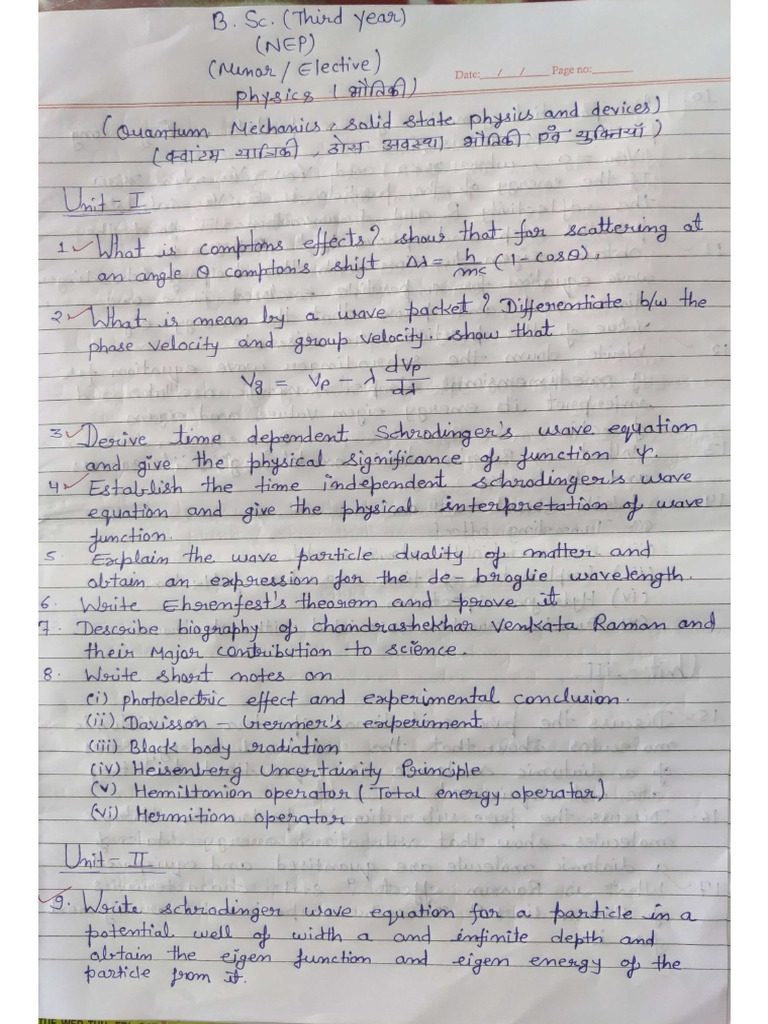 B. Sc. (Third Year)
(NEP)
(Menor / Elective)
Date: __/__/__ Page no: ____
Physics (भौतिकी)
(Quantum Mechanics, Solid State physics and devices)
(क्वांटम यांत्रिकी, ठोस अवस्था भौतिकी एवं युक्तियाँ)
Unit - I
1. What is comptons effects? show that for scattering at
an angle θ compton's shift Δλ = h/mc (1 - cosθ).
2. What is mean by a wave packet? Differentiate b/w the
phase velocity and group velocity. show that
Vg = Vp - λ dVp/dλ
3. Derive time dependent Schrodinger's wave equation
and give the physical significance of function ψ.
4. Establish the time independent schrodinger's wave
equation and give the physical interpretation of wave
function.
5. Explain the wave particle duality of matter and
obtain an expression for the de-broglie wavelength.
6. Write Ehrenfest's theorom and prove it
7. Describe biography of Chandrashekhar Venkata Raman and
their Major contribution to science.
8. Write short notes on
(i) photoelectric effect and experimental conclusion.
(ii) Davisson - Germer's experiment
(iii) Black body radiation
(iv) Heisenberg Uncertainity Principle
(v) Hemiltonion operator (Total energy operator)
(vi) Hermition operator
Unit - II
9. Write schrodinger wave equation for a particle in a
potential well of width a and infinite depth and
obtain the eigen function and eigen energy of the
particle from it.